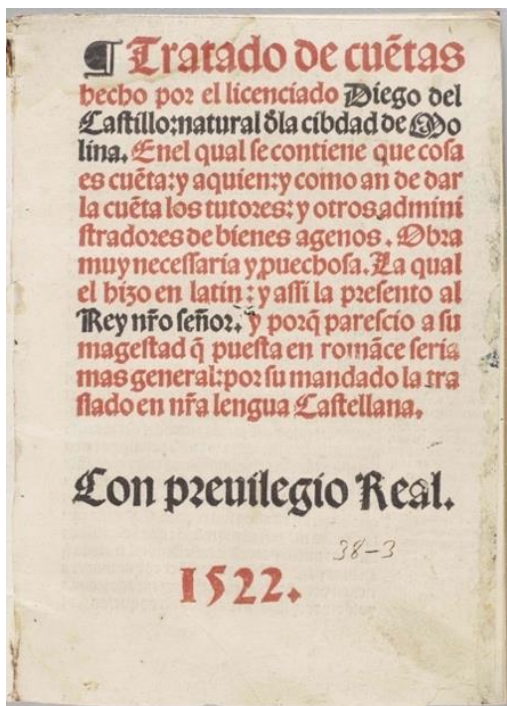 ¶ Tratado de cuẽtas
hecho por el licenciado Diego del
Castillo: natural d̃la cibdad de Mo
lina. Enel qual se contiene que cosa
es cuẽta: y aquien: y como an de dar
la cuẽta los tutores: y otros admini
stradores de bienes agenos. Obra
muy necessaria y ꝓuechosa. La qual
el hizo en latin: y assi la presento al
Rey nr̃o señor. y porq̃ parescio a su
magestad q̃ puesta en romãce seria
mas general: por su mandado la tra
slado en nr̃a lengua Castellana.
Con preuilegio Real.
38-3
1522.